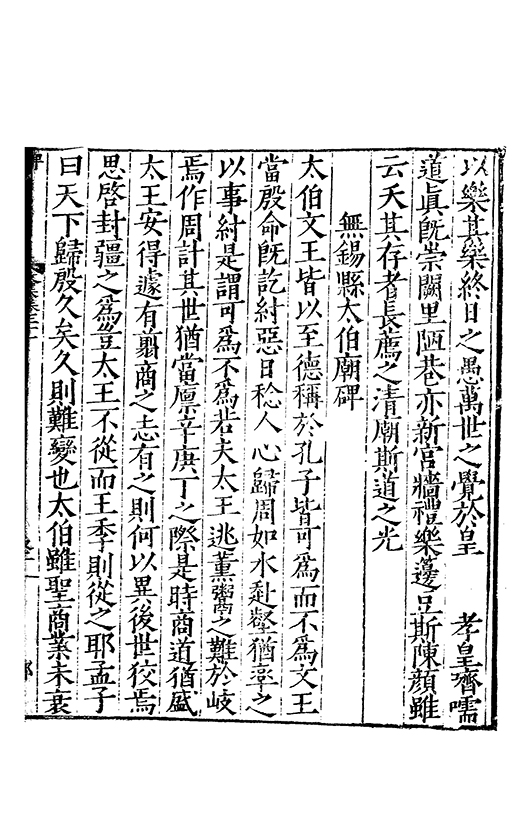 以樂其樂終日之愚萬世之覺於皇　孝皇齊嚅
道眞旣崇闕里陋巷亦新宮牆禮樂籩豆斯陳顏雖
云夭其存者長薦之淸廟斯道之光
無錫縣太伯廟碑
太伯文王皆以至德稱於孔子皆可爲而不爲文王
當殷命旣訖紂惡日稔人心歸周如水赴壑猶率之
以事紂是謂可爲不爲若夫太王逃薰鬻之難於岐
焉作周計其世猶當廩辛庚丁之際是時商道猶盛
太王安得遽有翦商之志有之則何以異後世狡焉
思啓封疆之爲豈太王不從而王季則從之耶孟子
曰天下歸殷久矣久則難變也太伯雖聖商業未衰